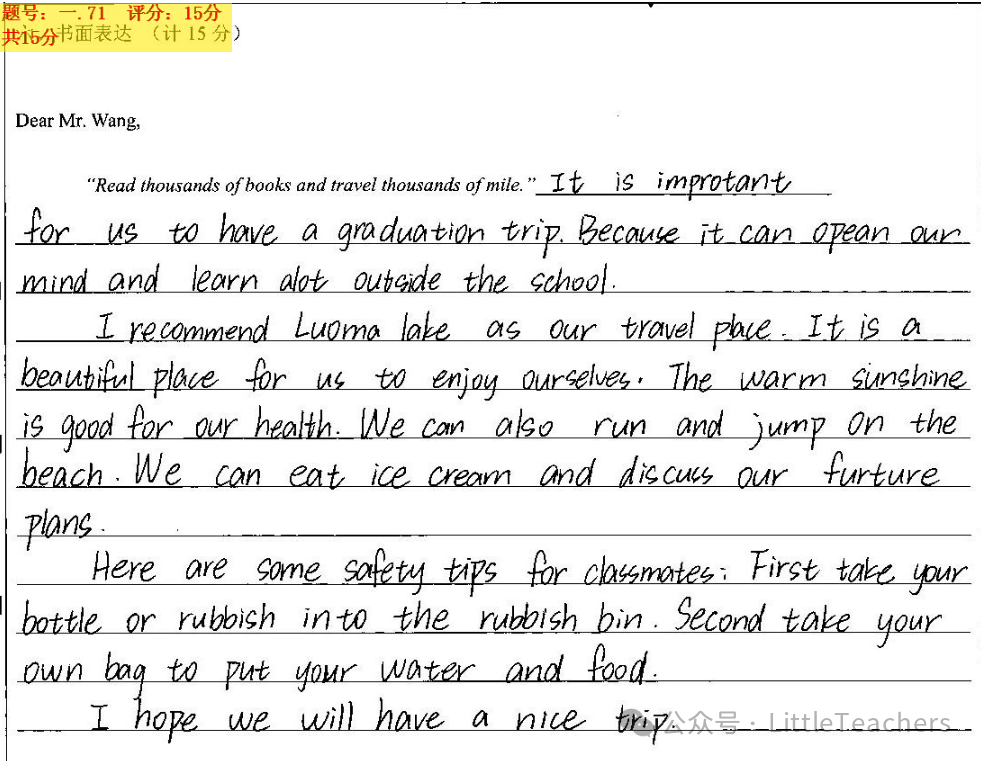 题号：一.71 评分：15分
共15分 书面表达 （计 15 分）
Dear Mr. Wang,
"Read thousands of books and travel thousands of mile." It is improtant
for us to have a graduation trip. Because it can opean our
mind and learn alot outside the school.
I recommend Luoma lake as our travel place. It is a
beautiful place for us to enjoy ourselves. The warm sunshine
is good for our health. We can also run and jump on the
beach. We can eat ice cream and discuss our furture
plans.
Here are some safety tips for classmates: First take your
bottle or rubbish into the rubbish bin. Second take your
own bag to put your water and food.
I hope we will have a nice trip.
公众号 · LittleTeachers